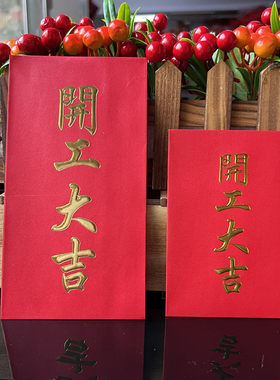 開工大吉
開工大吉